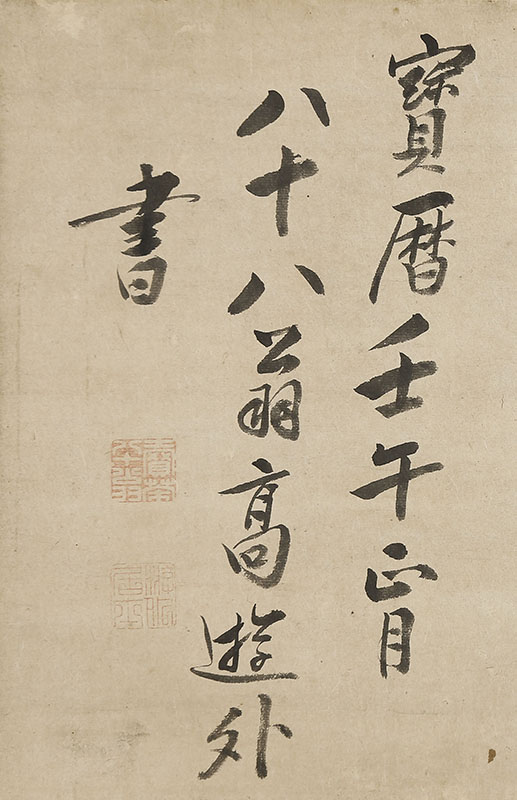 寶暦壬午正月
八十八翁高遊外
書